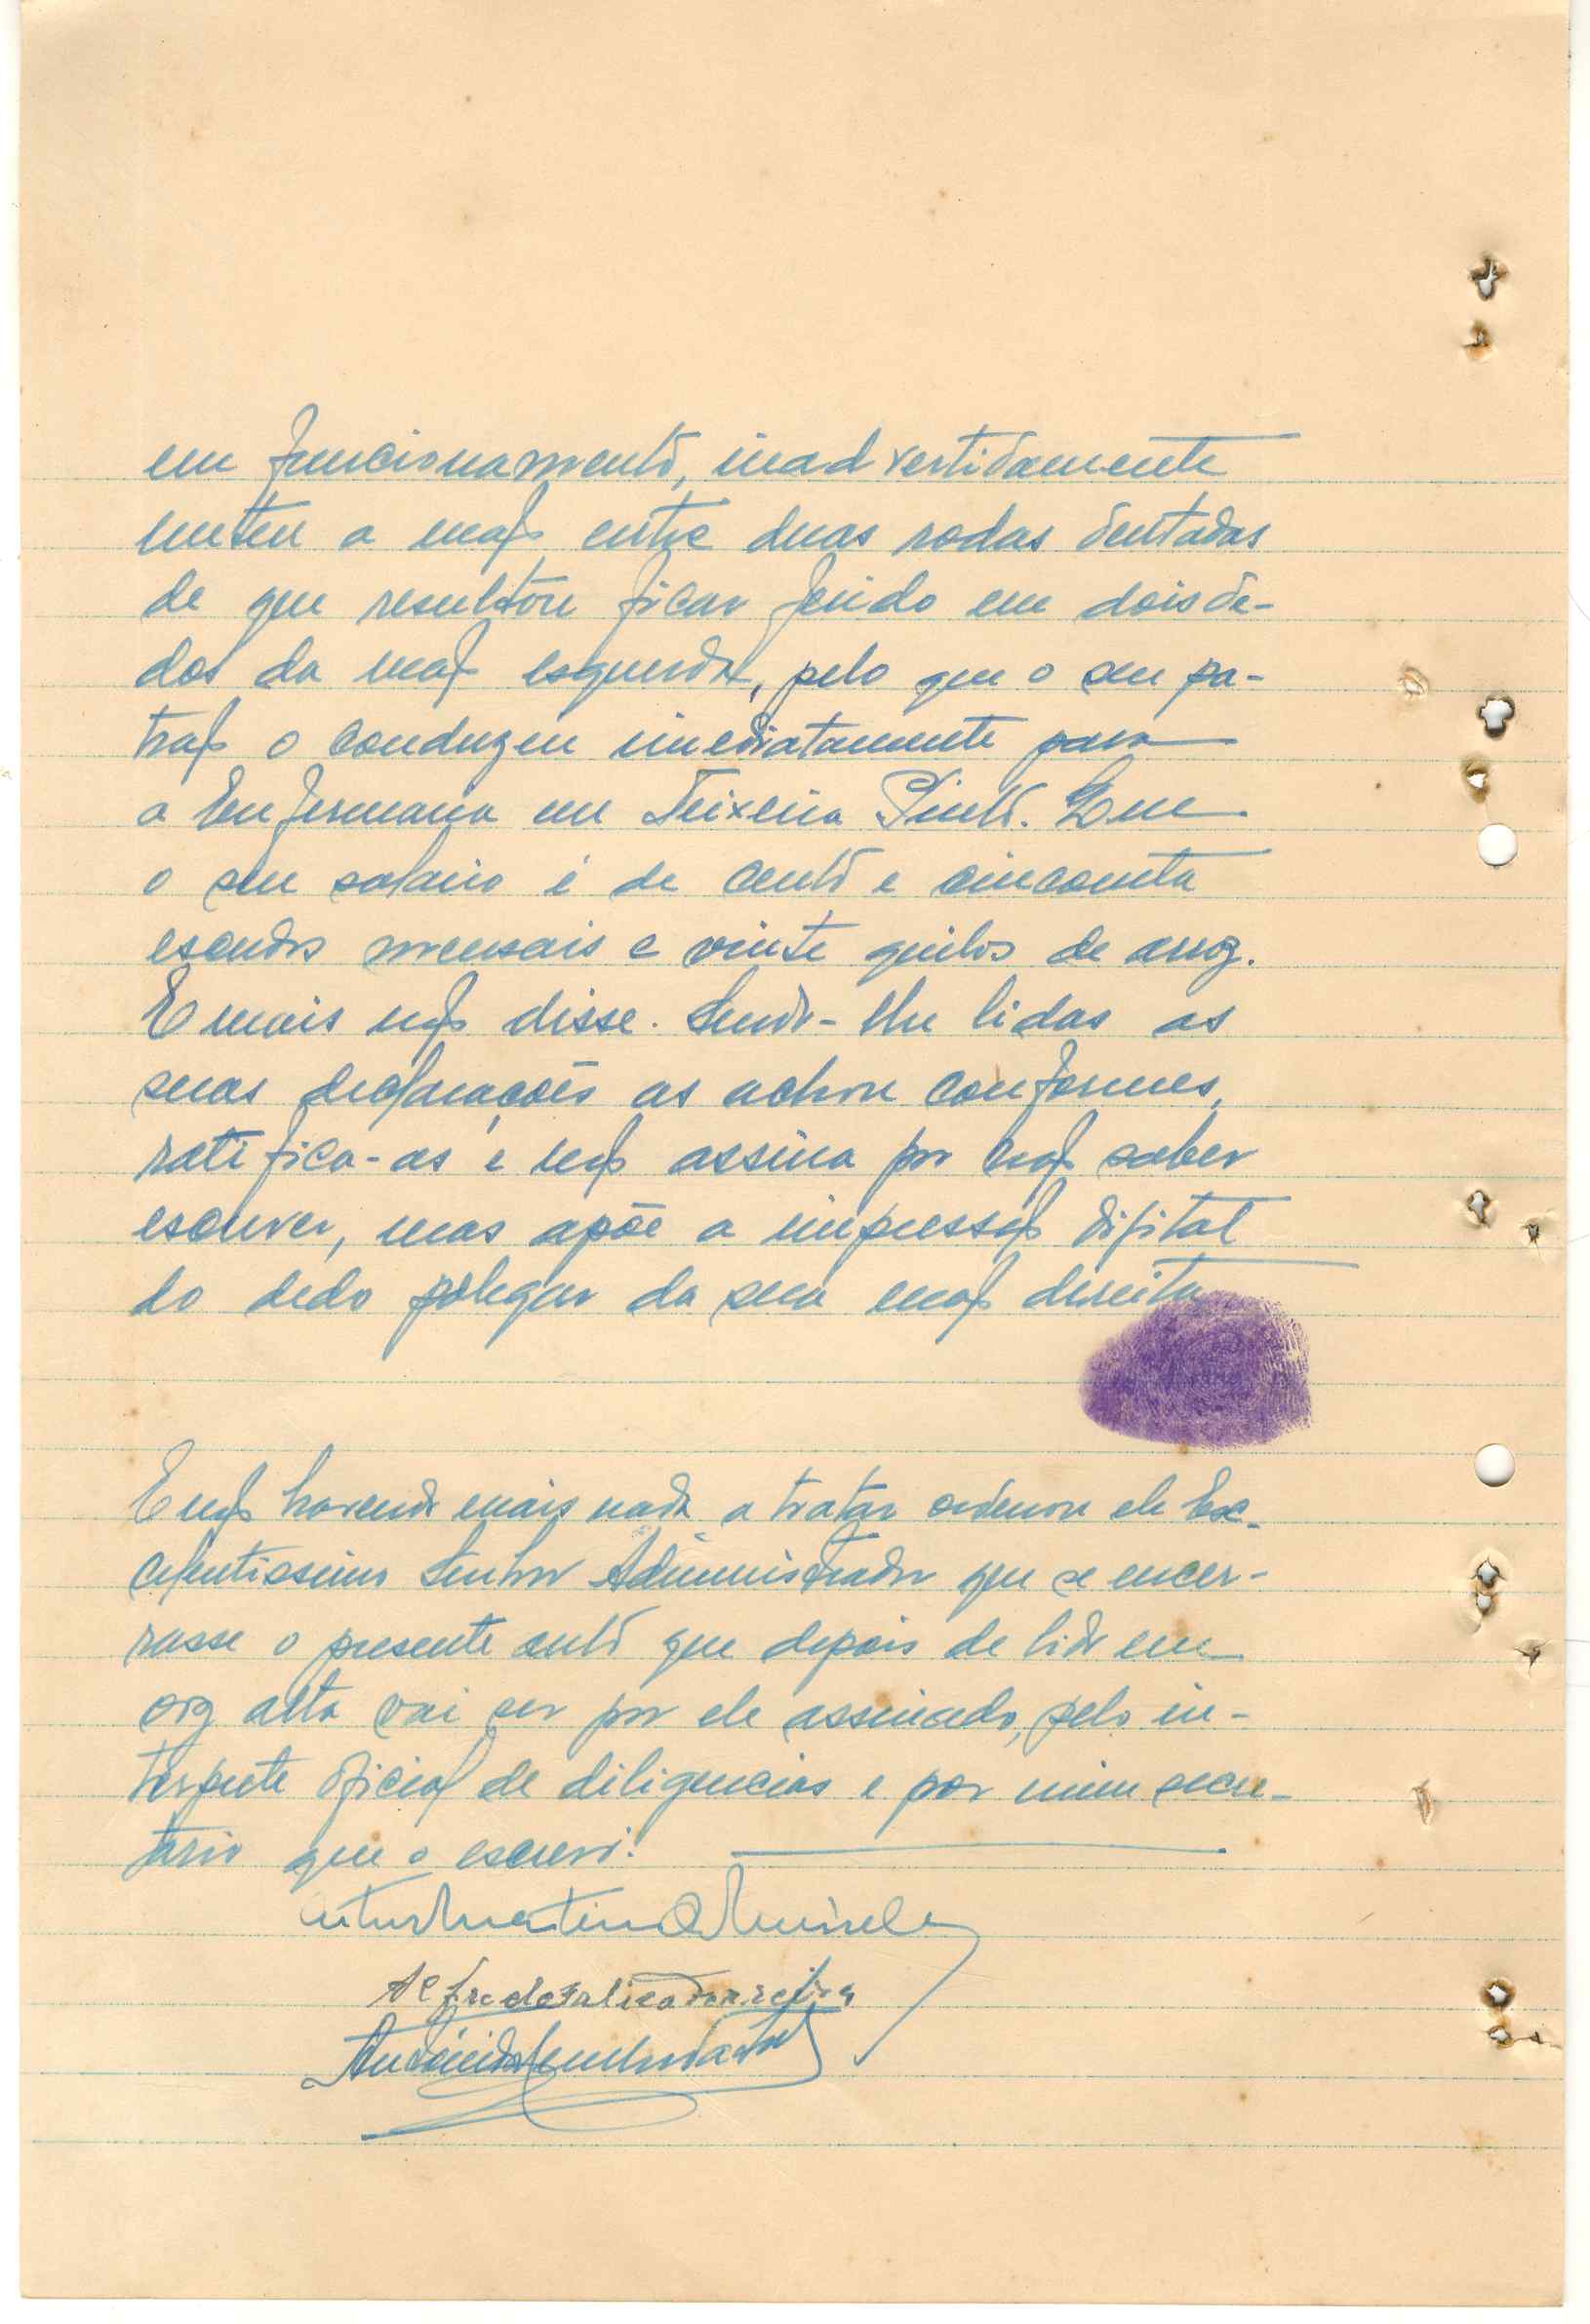 em funcionamento, inadvertidamente
meteu a mão entre duas rodas dentadas
de que resultou ficar ferido em dois de-
dos da mão esquerda, pelo que o seu pa-
trão o conduziu imediatamente para
a Enfermaria em Teixeira Pinto. Que
o seu salário é de cento e cincoenta
escudos mensais e vinte quilos de arroz.
E mais não disse. Sendo-lhe lidas as
suas declarações as achou conformes,
ratifica-as e não assina por não saber
escrever, mas apõe a impressão digital
do dedo polegar da sua mão direita
E não havendo mais nada a tratar ordenou ele Ex-
celentissimo Senhor Administrador que se encer-
rasse o presente auto que depois de lido em
voz alta vai ser por ele assinado, pelo in-
terprete oficial de diligencias e por mim secre-
tario que o escrevi.
Artur Martins
Alfredo
António